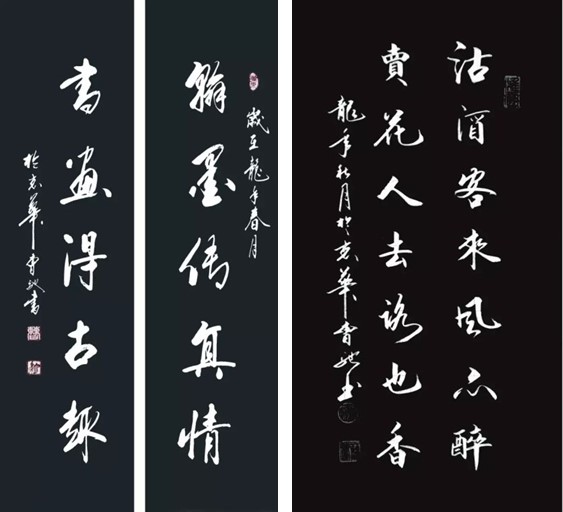 歲在龍年春月
翰墨傳真情
書畫得古趣
於京華曹書
沽酒客來風亦醉
賣花人去路也香
龍年秋月於京華曹书